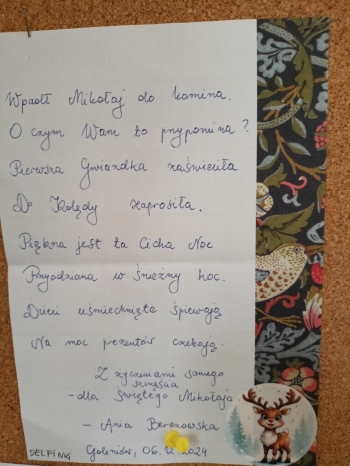 Wpadł Mikołaj do komina.
O czym Wam to przypomina?
Pierwsza Gwiazdka zaświeciła
Do Kolędy zaprosiła.
Piękna jest ta Cicha Noc
Przyodziana w śnieżny koc.
Dzieci uśmiechnięte śpiewają
Na moc prezentów czekają.
Z życzeniami samego
szczęścia
- dla Świętego Mikołaja
- Ania Berezowska
DELFINKI Goleniów, 06.12.2024